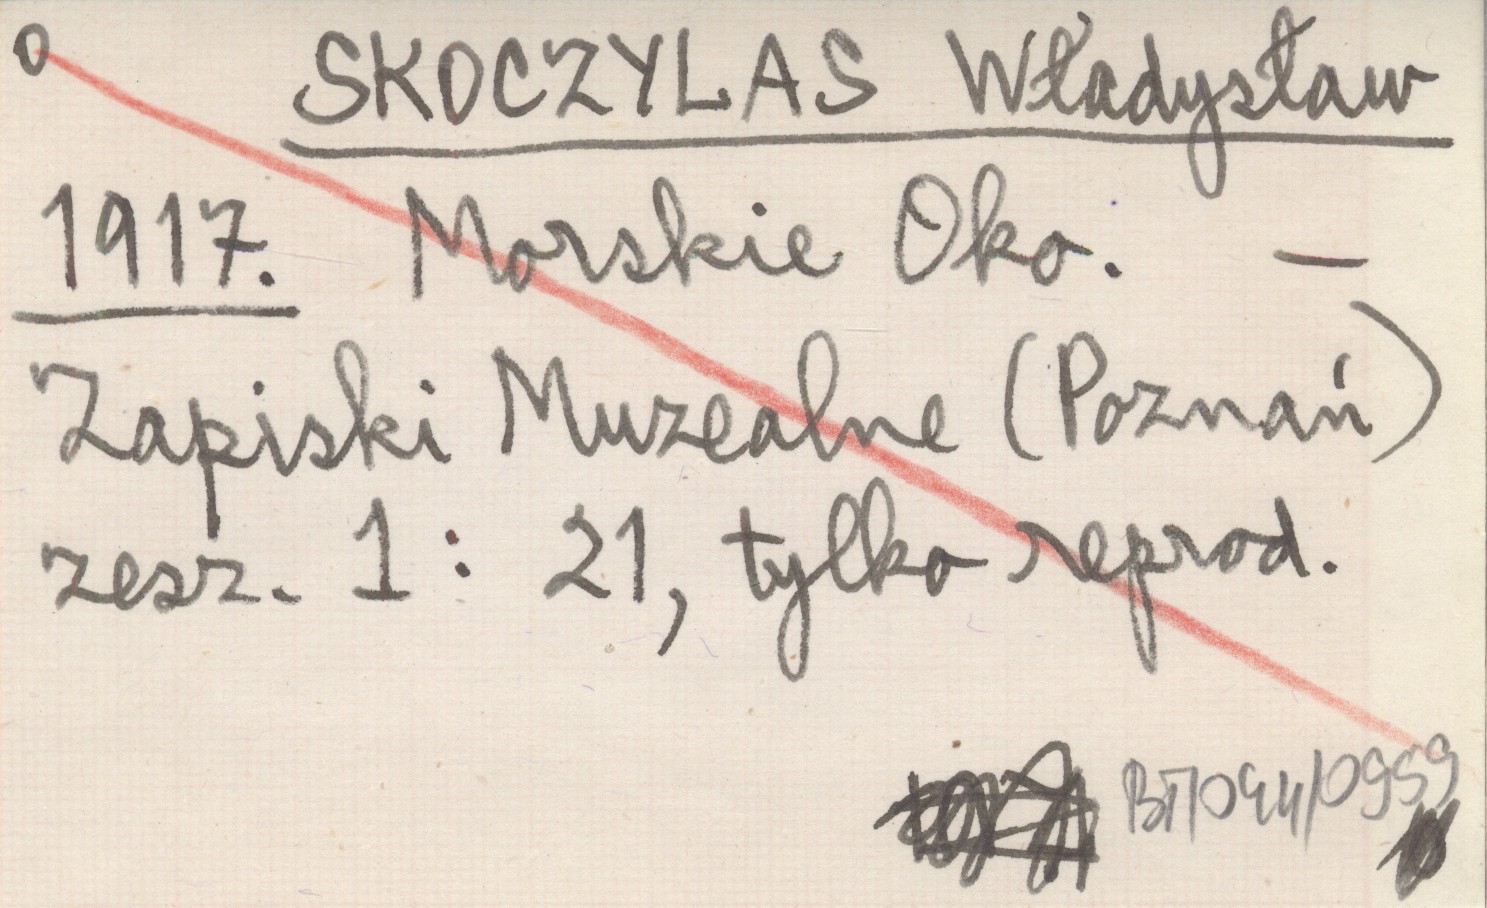 0 SKOCZYLAS Władysław
1917. Morskie Oko. —
Zapiski Muzealne (Poznań)
zesz. 1 : 21, tylko reprod.